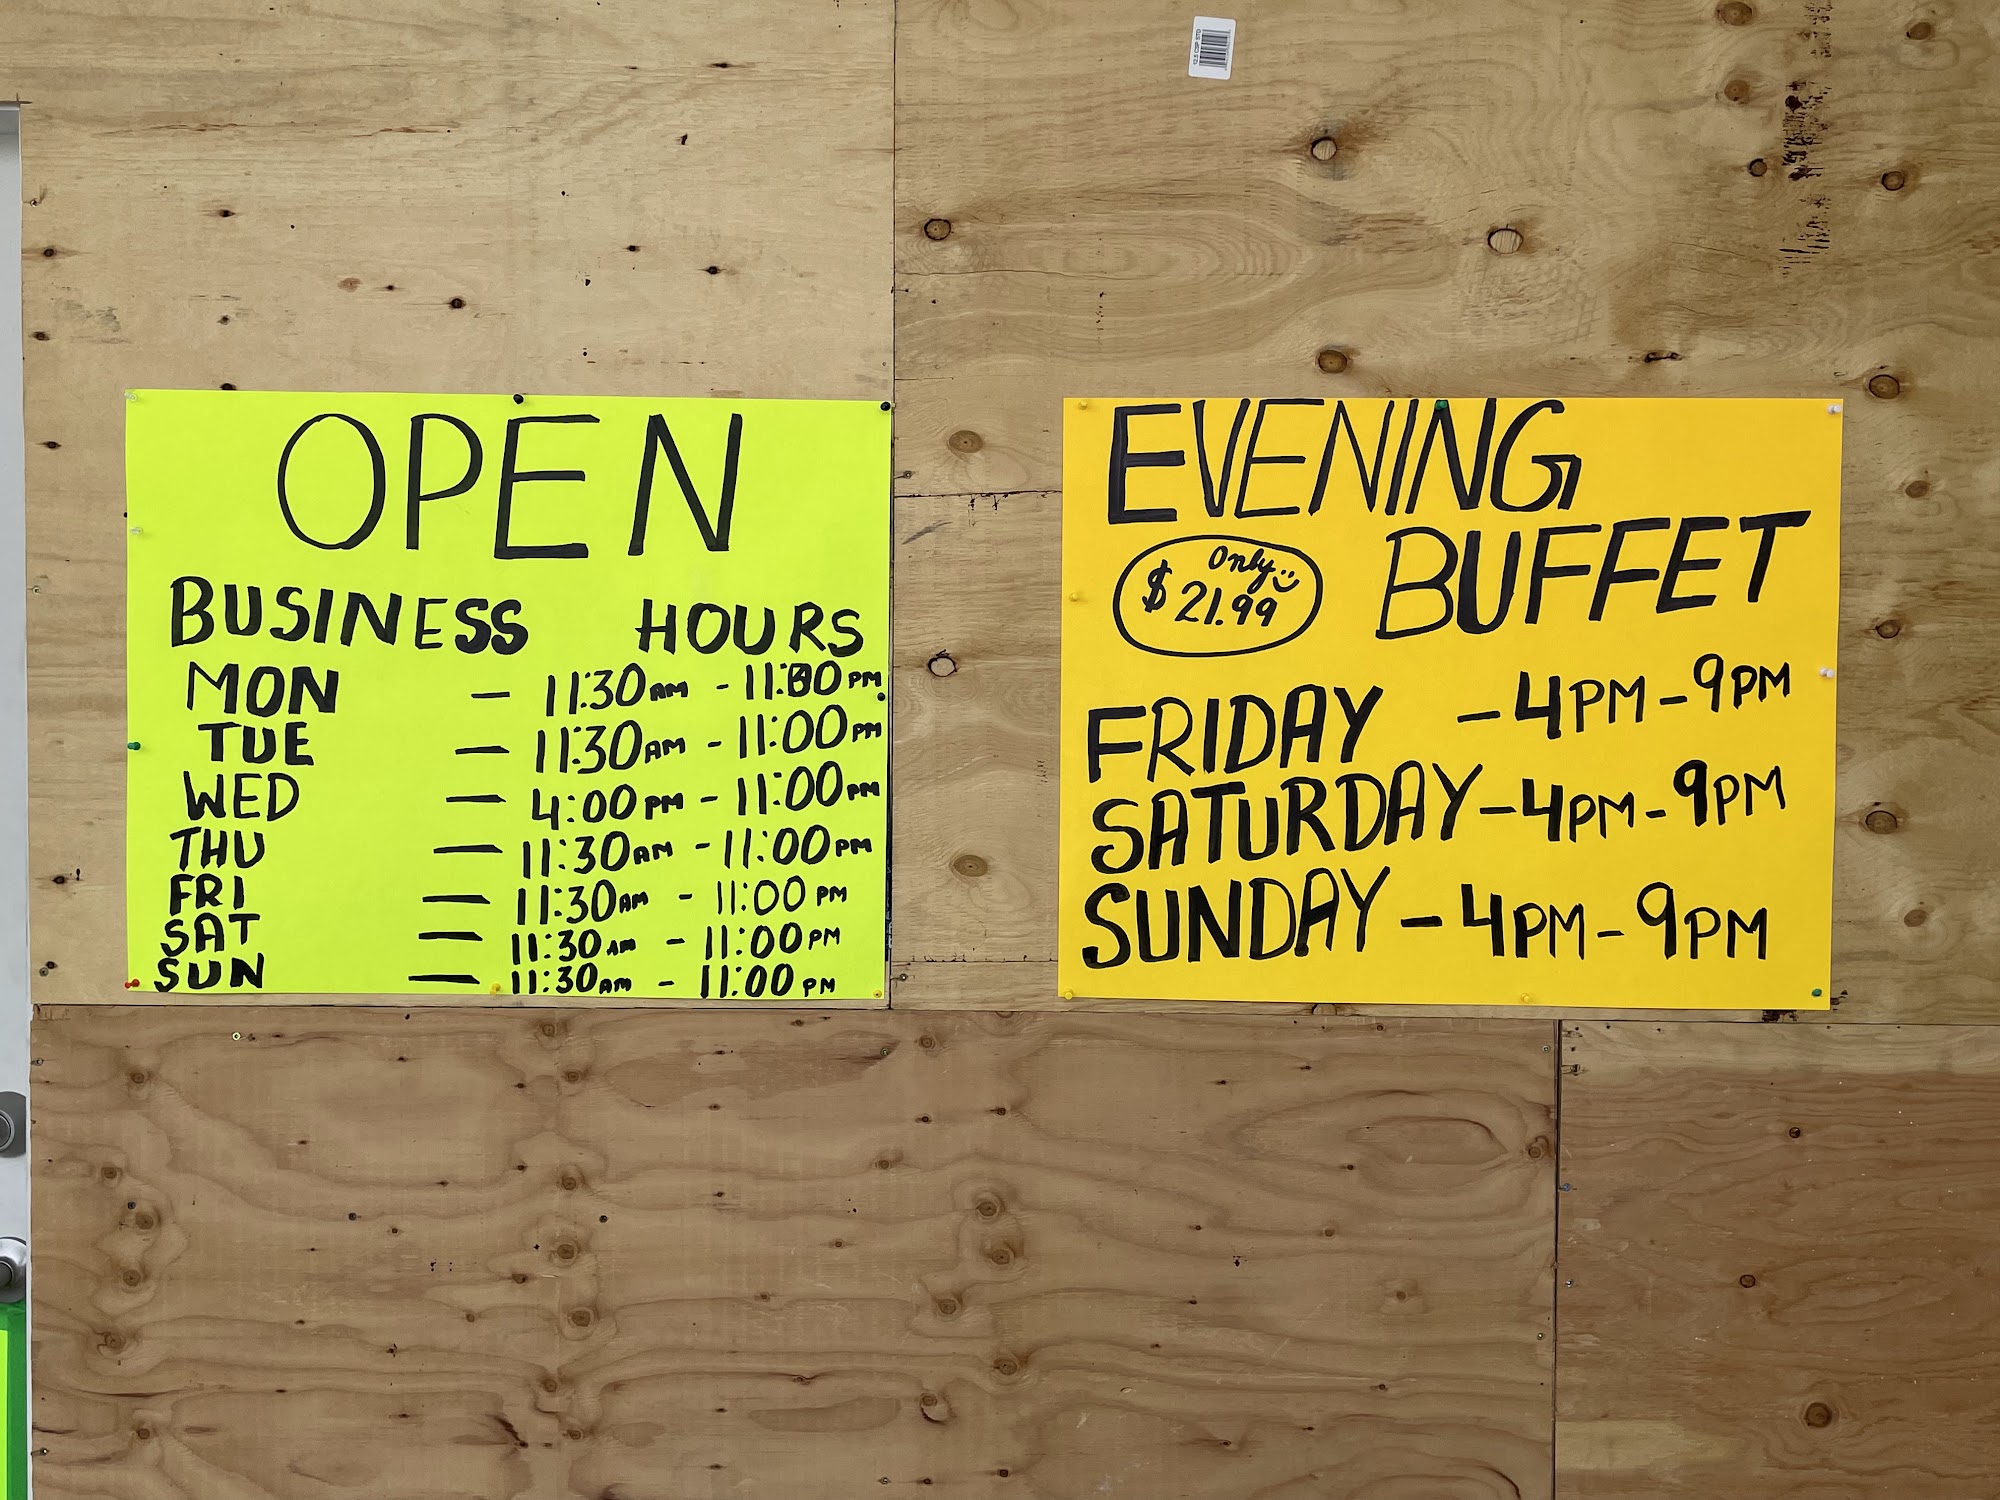 OPEN
BUSINESS HOURS
MON — 11:30AM - 11:00PM
TUE — 11:30AM - 11:00PM
WED — 4:00PM - 11:00PM
THU — 11:30AM - 11:00PM
FRI — 11:30AM - 11:00PM
SAT — 11:30AM - 11:00PM
SUN — 11:30AM - 11:00PM
EVENING
BUFFET
Only
$21.99
FRIDAY - 4PM - 9PM
SATURDAY - 4PM - 9PM
SUNDAY - 4PM - 9PM